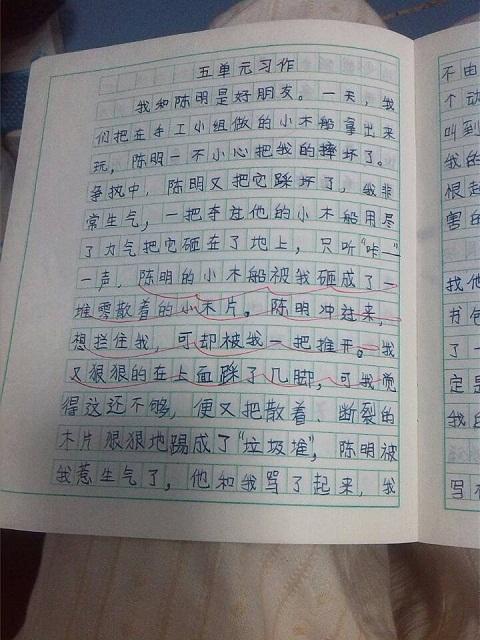 五单元习作
我和陈明是好朋友。一天，我
们把在手工小组做的小木船拿出来
玩，陈明一不小心把我的摔坏了。
争执中，陈明又把它踩坏了，我非
常生气，一把夺过他的小木船用尽
了力气把它砸在了地上，只听“咔——”
一声，陈明的小木船被我砸成了一
堆零散着的小木片。陈明冲过来，
想拦住我，可却被我一把推开。我
又狠狠的在上面踩了几脚，可我觉
得这还不够，便又把散着、断裂的
木片狠狠地踢成了“垃圾堆”，陈明被
我惹生气了，他和我骂了起来，我
不由
个动
叫到
我的
恨起
害的
找他
书包
了一
定是
我的
写